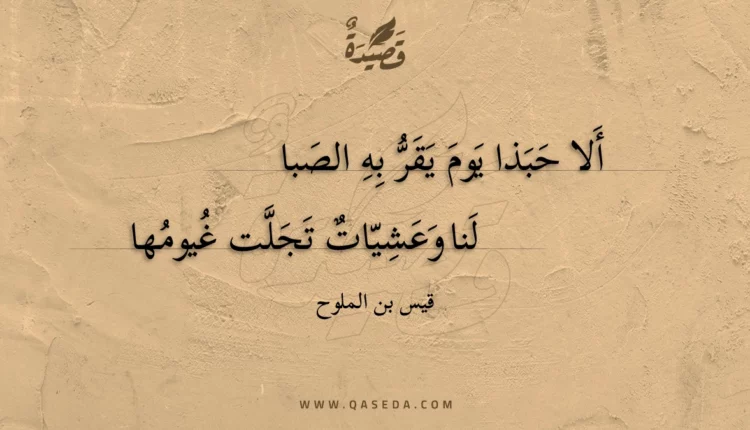 قَصِيدَةٌ
أَلا حَبَذا يَومَ يَقَرُّ بِهِ الصَبا
لَنا وَعَشِيّاتٌ تَجَلَّت غُيومُها
قيس بن الملوح
WWW.QASEDA.COM